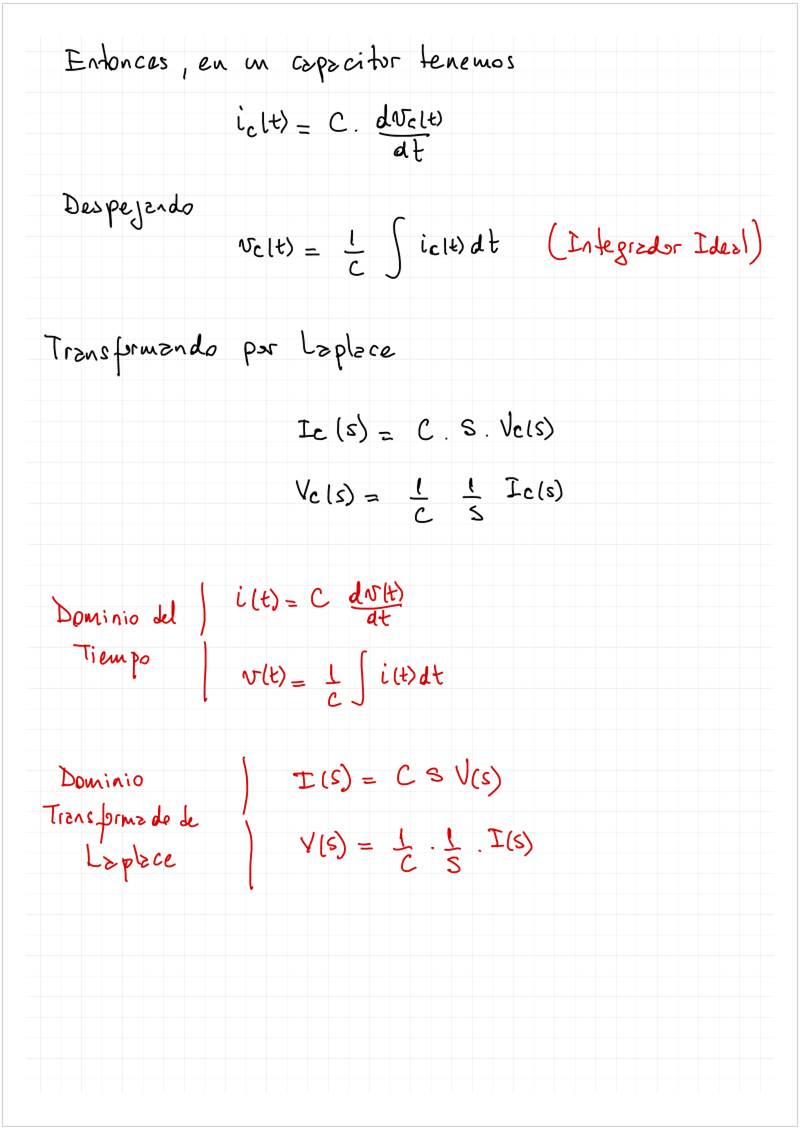 Entonces, en un capacitor tenemos
i_c(t) = C . dv_c(t)/dt
Despejando
v_c(t) = 1/C ∫ i_c(t) dt (Integrador Ideal)
Transformando por Laplace
I_c(s) = C . S . V_c(s)
V_c(s) = 1/C 1/S I_c(s)
Dominio del Tiempo | i(t) = C dv(t)/dt
| v(t) = 1/C ∫ i(t) dt
Dominio Transformado de Laplace | I(s) = C S V(s)
| V(s) = 1/C . 1/S . I(s)